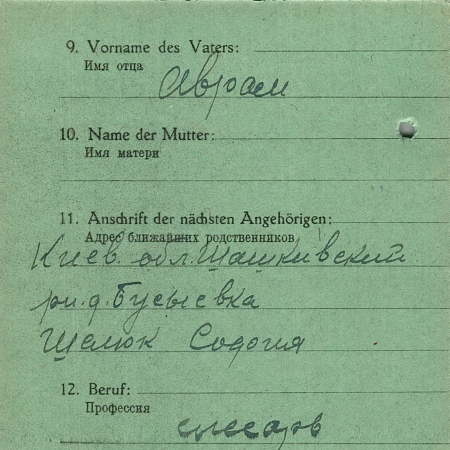 9. Vorname des Vaters:
Имя отца
Аврам
10. Name der Mutter:
Имя матери
11. Anschrift der nächsten Angehörigen:
Адрес ближайших родственников
Киев. обл. Шашкивский
рн. д. Бусыевка
Щелюк Содогия
12. Beruf:
Профессия
слесарь